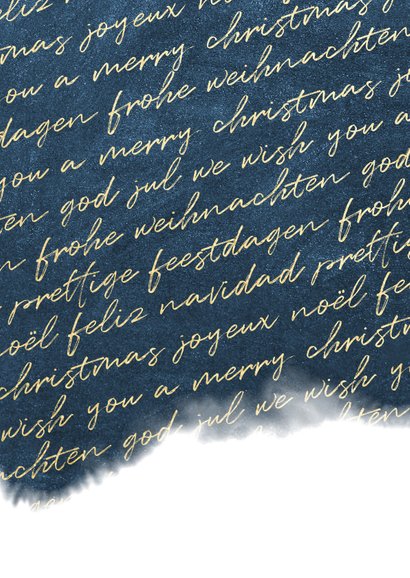 feliz
tmas joyeux noël
you a merry christmas
dagen frohe weihnachten
you a merry christmas jo
ten god jul we wish you a
n frohe weihnachten god
prettige feestdagen froh
noël feliz navidad prett
christmas joyeux noël fe
wish you a merry christm
achten god jul we wish you